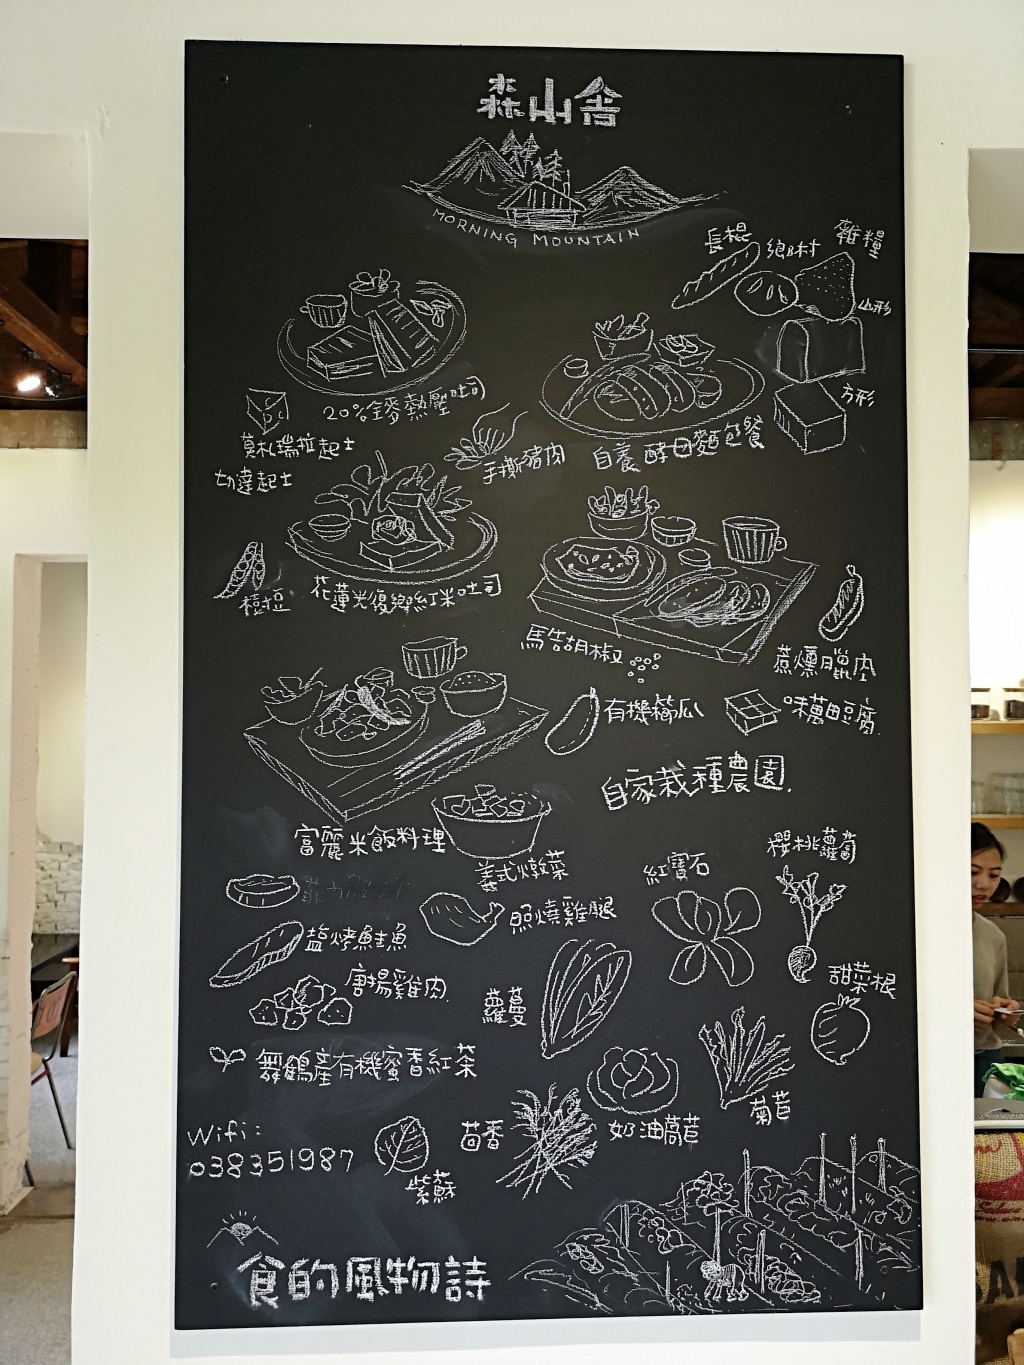 森山舍
MORNING MOUNTAIN
長棍
鄉村
雜糧
山形
方形
20%全麥熱壓吐司
莫札瑞拉起士
切達起士
手撕豬肉
自養酵母麵包餐
樹豆
花蓮光復鄉紅米吐司
馬告胡椒
蔗燻臘肉
有機櫛瓜
味萬田豆腐
自家栽種農園
富麗米飯料理
義式燉菜
紅寶石
櫻桃蘿蔔
照燒雞腿
塩烤鮭魚
唐揚雞肉
蘿蔓
甜菜根
舞鶴產有機蜜香紅茶
茴香
奶油萵苣
菊苣
Wifi:
038351987
紫蘇
食的風物詩